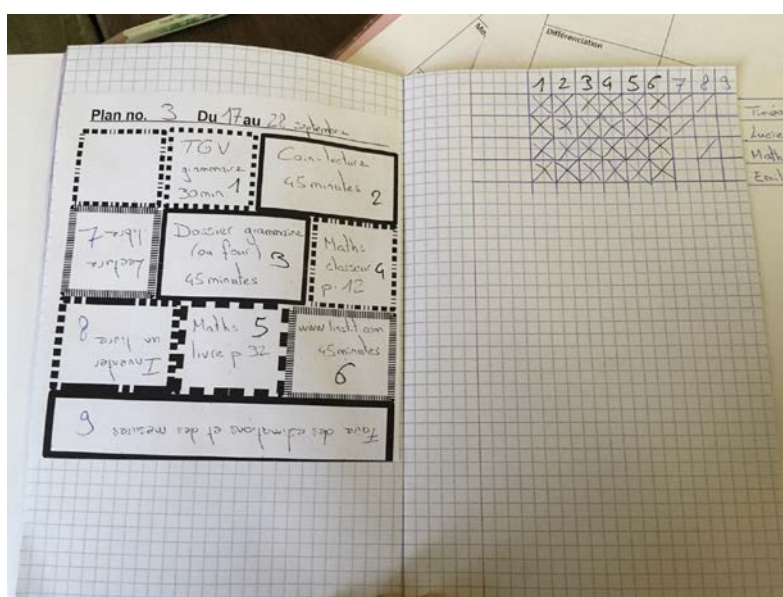 Différenciation
Plan no. 3 Du 17 au 22 septembre
TGV
grammaire
30 min 1
Coin-lecture
45 minutes 2
Lecture
libre 7
Dossier grammaire
(ou four) 3
45 minutes
Maths
classeur 4
p. 12
Inventer
un livre 8
Maths 5
livre p 32
www.linstit.com
45 minutes
6
Faire des estimations et des mesures 9
1 2 3 4 5 6 7 8 9
Lucie
Math
Emil